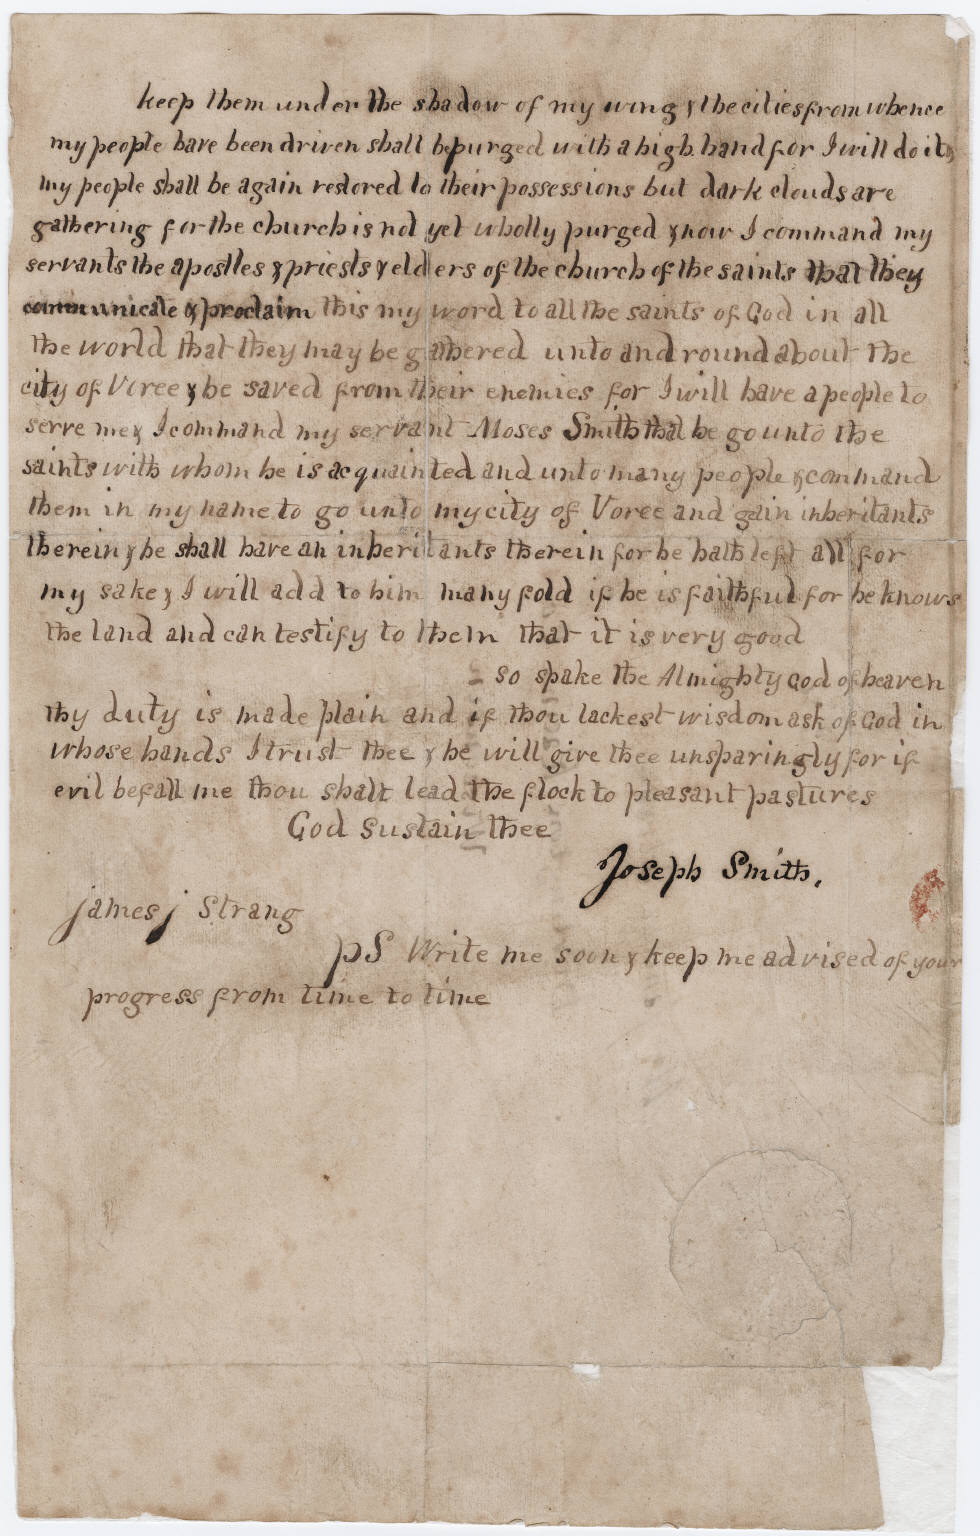 keep them under the shadow of my wing & the cities from whence
my people have been driven shall be purged with a high hand for I will do it &
my people shall be again restored to their possessions but dark clouds are
gathering for the church is not yet wholly purged & now I command my
servants the apostles & priests & elders of the church of the saints that they
communicate & proclaim this my word to all the saints of God in all
the world that they may be gathered unto and round about the
city of Voree & be saved from their enemies for I will have a people to
serve me & I command my servant Moses Smith that he go unto the
saints with whom he is acquainted and unto many people & command
them in my name to go unto my city of Voree and gain inheritants
therein & he shall have an inheritants therein for he hath left all for
my sake & I will add to him many fold if he is faithful for he knows
the land and can testify to them that it is very good
- so spake the Almighty God of heaven
thy duty is made plain and if thou lackest wisdom ask of God in
whose hands I trust thee & he will give thee unsparingly for if
evil befall me thou shalt lead the flock to pleasant pastures
God sustain thee
Joseph Smith.
james j Strang
pS Write me soon & keep me advised of your
progress from time to time